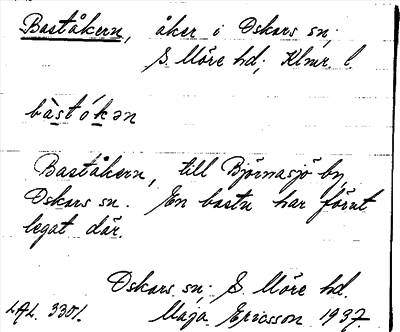 Baståkern, åker i Oskars sn;
S. Möre hd; Klmr l.
bàstókən
Baståkern, till Björnasjö by,
Oskars sn. En bastu har förut
legat där.
Oskars sn; S. Möre hd.
LAL. 3301. Maja Ericsson 1937.